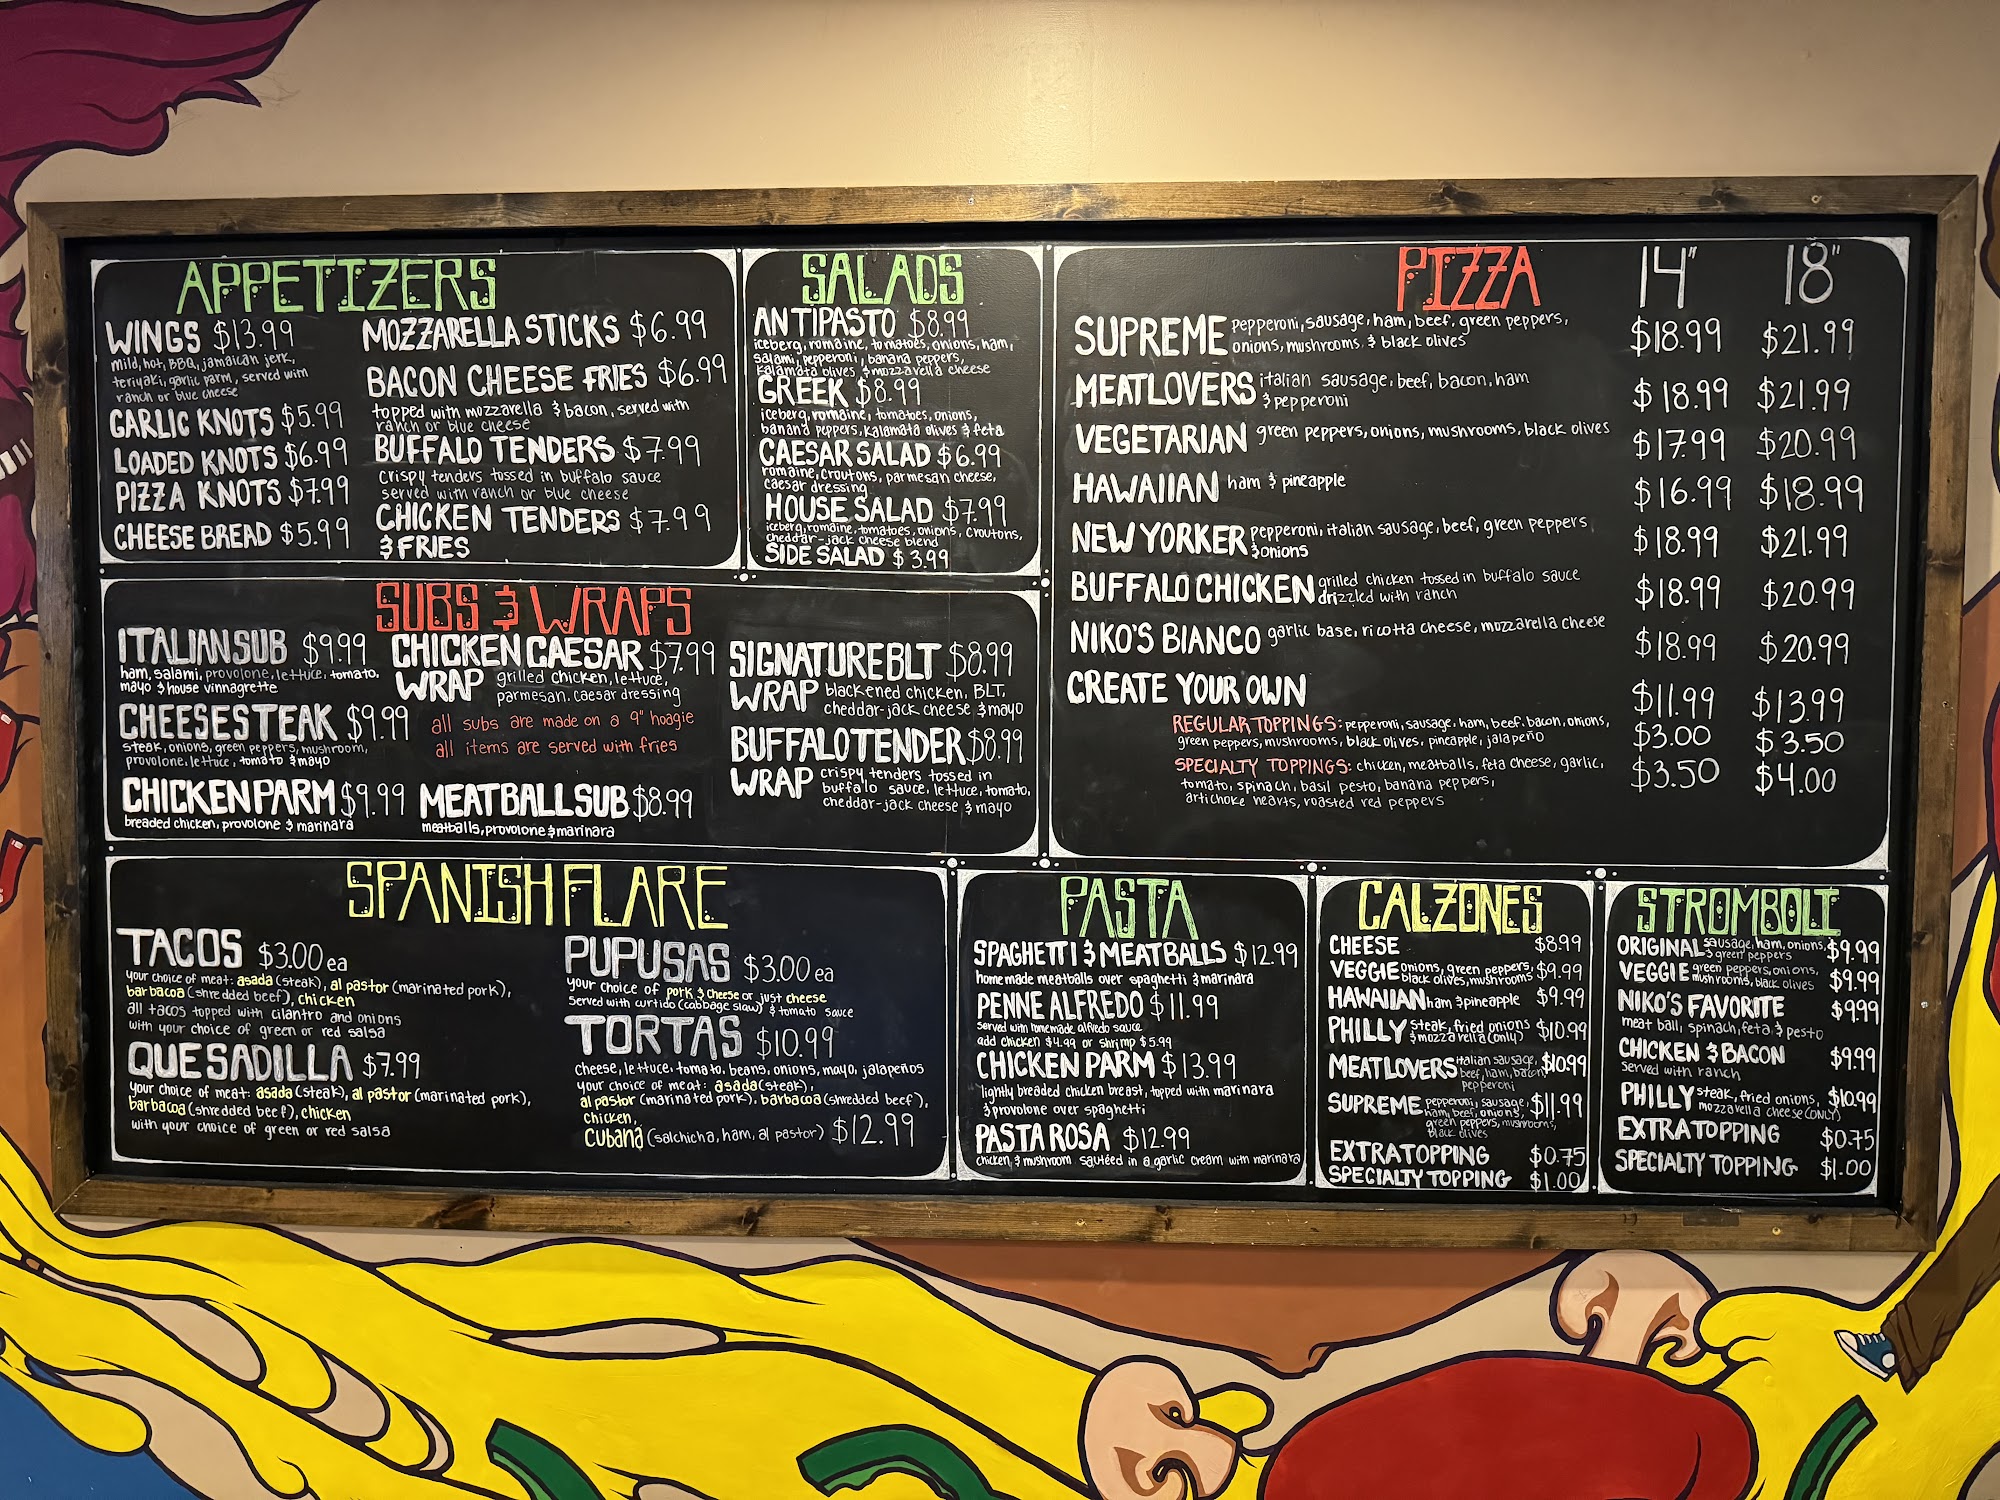 APPETIZERS
WINGS $13.99
mild, hot, BBQ, jamaican jerk,
teriyaki, garlic parm, served with
ranch or blue cheese
GARLIC KNOTS $5.99
LOADED KNOTS $6.99
PIZZA KNOTS $7.99
CHEESE BREAD $5.99
MOZZARELLA STICKS $6.99
BACON CHEESE FRIES $6.99
topped with mozzarella & bacon, served with
ranch or blue cheese
BUFFALO TENDERS $7.99
crispy tenders tossed in buffalo sauce
served with ranch or blue cheese
CHICKEN TENDERS $7.99
& FRIES
SALADS
ANTIPASTO $8.99
iceberg, romaine, tomatoes, onions, ham,
salami, pepperoni, banana peppers,
kalamata olives, & mozzarella cheese
GREEK $8.99
iceberg, romaine, tomatoes, onions,
banana peppers, kalamata olives & feta
CAESAR SALAD $6.99
romaine, croutons, parmesan cheese,
caesar dressing
HOUSE SALAD $7.99
iceberg, romaine, tomatoes, onions, croutons,
cheddar-jack cheese blend
SIDE SALAD $3.99
PIZZA 14" 18"
SUPREME pepperoni, sausage, ham, beef, green peppers, $18.99 $21.99
onions, mushrooms & black olives
MEATLOVERS italian sausage, beef, bacon, ham $18.99 $21.99
& pepperoni
VEGETARIAN green peppers, onions, mushrooms, black olives $17.99 $20.99
HAWAIIAN ham & pineapple $16.99 $18.99
NEW YORKER pepperoni, italian sausage, beef, green peppers $18.99 $21.99
& onions
BUFFALO CHICKEN grilled chicken tossed in buffalo sauce $18.99 $20.99
drizzled with ranch
NIKO'S BIANCO garlic base, ricotta cheese, mozzarella cheese $18.99 $20.99
CREATE YOUR OWN $11.99 $13.99
REGULAR TOPPINGS: pepperoni, sausage, ham, beef, bacon, onions, $3.00 $3.50
green peppers, mushrooms, black olives, pineapple, jalapeño
SPECIALTY TOPPINGS: chicken, meatballs, feta cheese, garlic, $3.50 $4.00
tomato, spinach, basil pesto, banana peppers,
artichoke hearts, roasted red peppers
SUBS & WRAPS
ITALIAN SUB $9.99
ham, salami, provolone, lettuce, tomato,
mayo & house vinnagrette
CHEESESTEAK $9.99
steak, onions, green peppers, mushroom,
provolone, lettuce, tomato & mayo
CHICKEN PARM $9.99
breaded chicken, provolone & marinara
CHICKEN CAESAR $7.99
WRAP grilled chicken, lettuce,
parmesan, caesar dressing
all subs are made on a 9" hoagie
all items are served with fries
MEATBALL SUB $8.99
meatballs, provolone & marinara
SIGNATURE BLT $8.99
WRAP blackened chicken, BLT,
cheddar-jack cheese & mayo
BUFFALO TENDER $8.99
WRAP crispy tenders tossed in
buffalo sauce, lettuce, tomato,
cheddar-jack cheese & mayo
SPANISH FLARE
TACOS $3.00 ea
your choice of meat: asada (steak), al pastor (marinated pork),
barbacoa (shredded beef), chicken
all tacos topped with cilantro and onions
with your choice of green or red salsa
QUESADILLA $7.99
your choice of meat: asada (steak), al pastor (marinated pork),
barbacoa (shredded beef), chicken
with your choice of green or red salsa
PUPUSAS $3.00 ea
your choice of pork & cheese or just cheese
served with curtido (cabbage slaw) & tomato sauce
TORTAS $10.99
cheese, lettuce, tomato, beans, onions, mayo, jalapeños
your choice of meat: asada (steak),
al pastor (marinated pork), barbacoa (shredded beef),
chicken,
Cubana (salchicha, ham, al pastor) $12.99
PASTA
SPAGHETTI & MEATBALLS $12.99
homemade meatballs over spaghetti & marinara
PENNE ALFREDO $11.99
served with homemade alfredo sauce
add chicken $4.99 or shrimp $5.99
CHICKEN PARM $13.99
lightly breaded chicken breast, topped with marinara
& provolone over spaghetti
PASTA ROSA $12.99
chicken & mushroom sautéed in a garlic cream with marinara
CALZONES
CHEESE $8.99
VEGGIE onions, green peppers, $9.99
black olives, mushrooms
HAWAIIAN ham & pineapple $9.99
PHILLY steak, fried onions $10.99
& mozzarella (only)
MEATLOVERS italian sausage, $10.99
beef, ham, bacon,
pepperoni
SUPREME pepperoni, sausage, $11.99
ham, beef, onions,
green peppers, mushrooms,
black olives
EXTRA TOPPING $0.75
SPECIALTY TOPPING $1.00
STROMBOLI
ORIGINAL sausage, ham, onions, $9.99
& green peppers
VEGGIE green peppers, onions, $9.99
mushrooms, black olives
NIKO'S FAVORITE $9.99
meat ball, spinach, feta & pesto
CHICKEN & BACON $9.99
served with ranch
PHILLY steak, fried onions, $10.99
mozzarella cheese (ONLY)
EXTRA TOPPING $0.75
SPECIALTY TOPPING $1.00